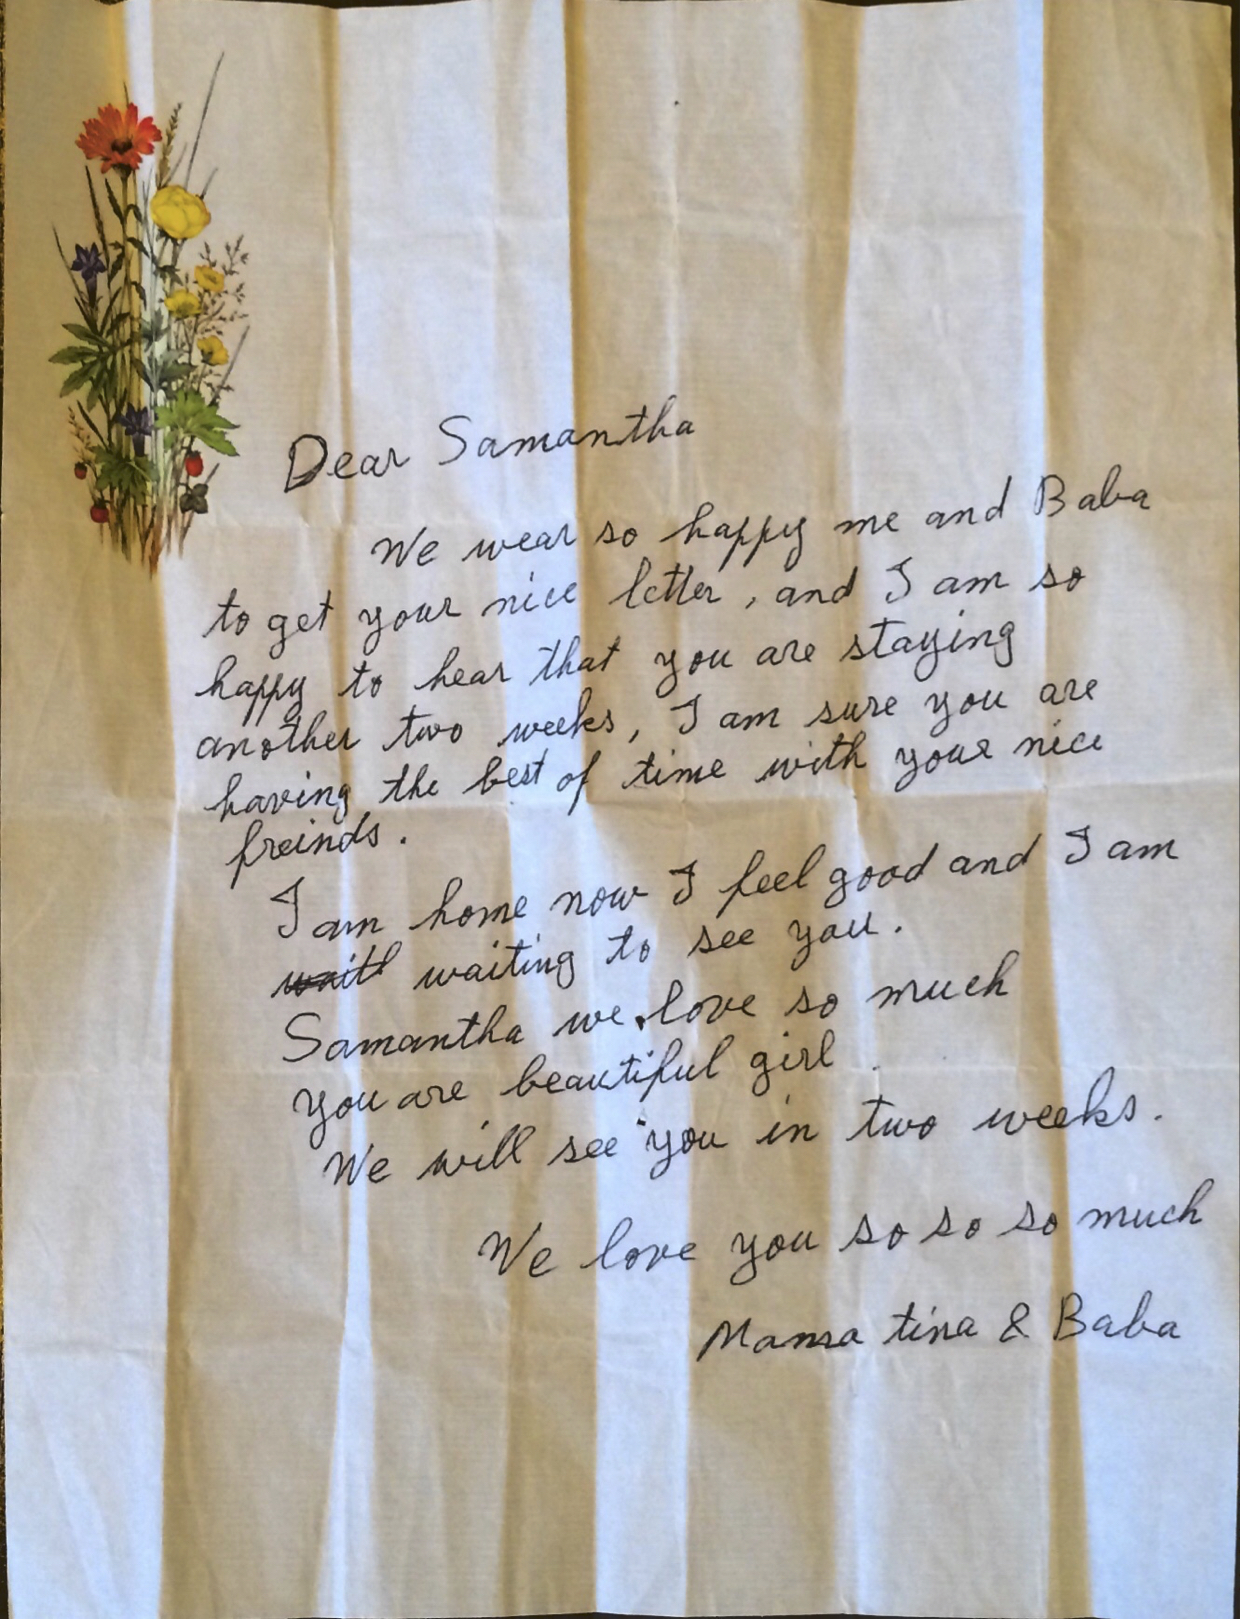 Dear Samantha
We wear so happy me and Baba
to get your nice letter, and I am so
happy to hear that you are staying
another two weeks, I am sure you are
having the best of time with your nice
freinds.
I am home now I feel good and I am
waiting to see you.
Samantha we love so much
you are beautiful girl.
We will see you in two weeks.
We love you so so so much
Mama tina & Baba